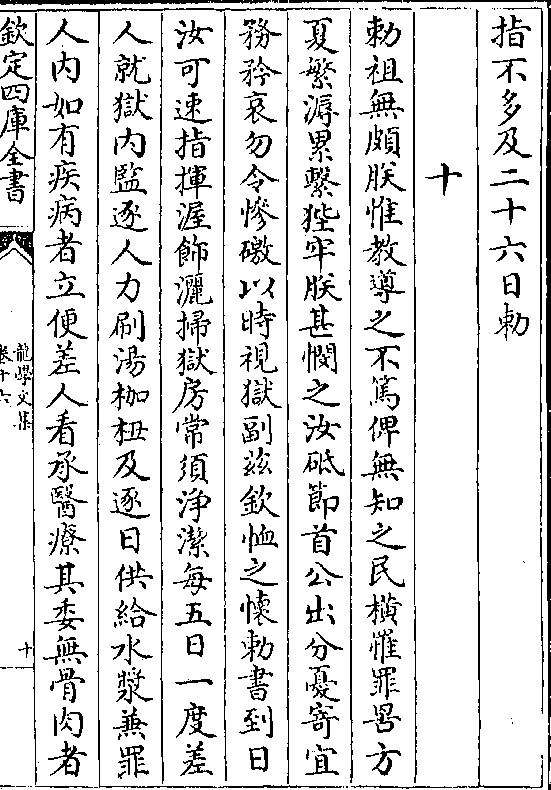 指不多及二十六日勅
十
勅祖無頗朕惟教導之不篤俾無知之民橫罹罪罟方
夏繁溽累繫狴牢朕甚憫之汝砥節首公出分憂寄宜
務矜哀勿令慘礉以時視獄副茲欽恤之懷勅書到日
汝可速指揮渥飾灑掃獄房常須淨潔每五日一度差
人就獄内監逐人力刷湯枷杻及逐日供給水漿兼罪
人内如有疾病者立便差人看承醫療其委無骨肉者
欽定四庫全書
龍學文集
卷十六
十